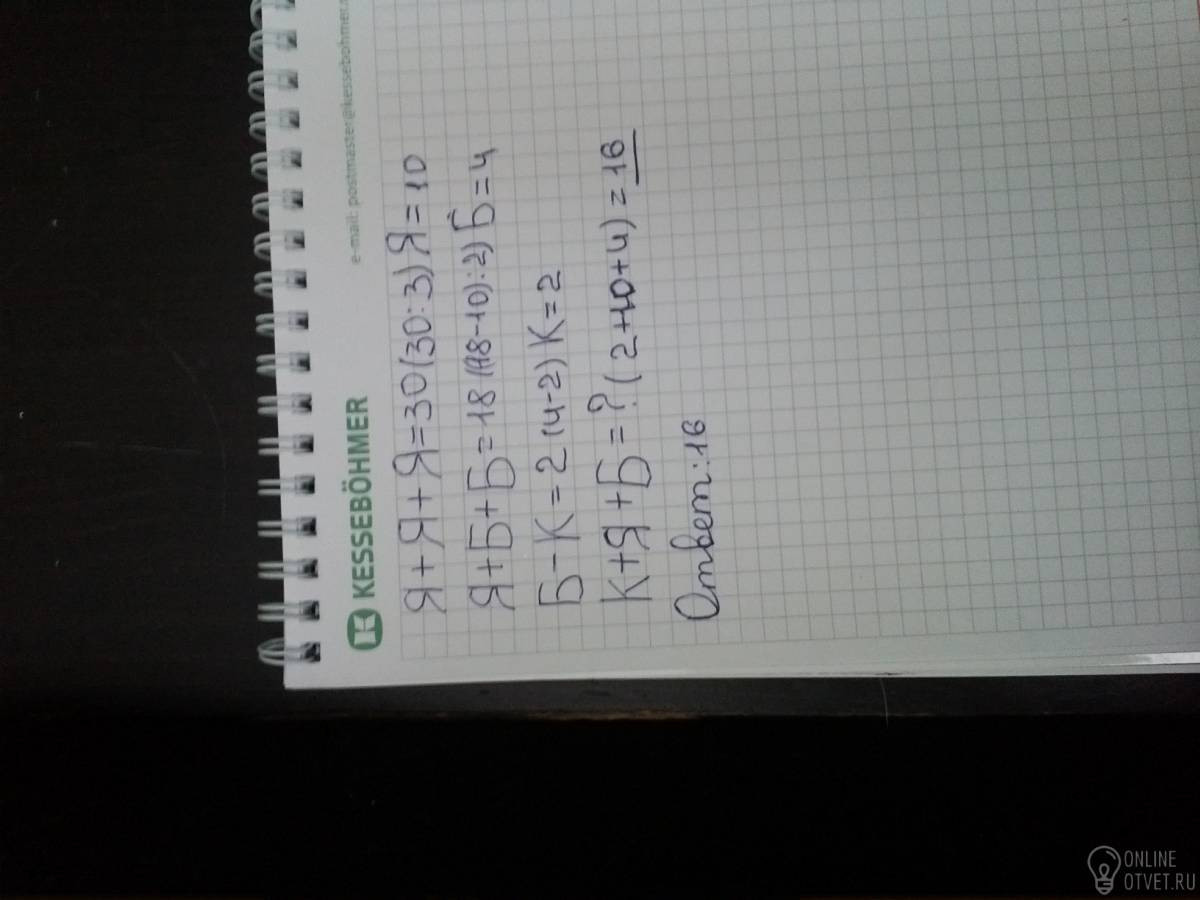 KESSEBÖHMER
e-mail: postmaster@kessebohmer.
Я+Я+Я=30(30:3)Я=10
Я+Б+Б=18(18-10):2)Б=4
Б-К=2(4-2)К=2
К+Я+Б=?(2+10+4)=16
Ответ:16
ONLINE
OTVET.RU